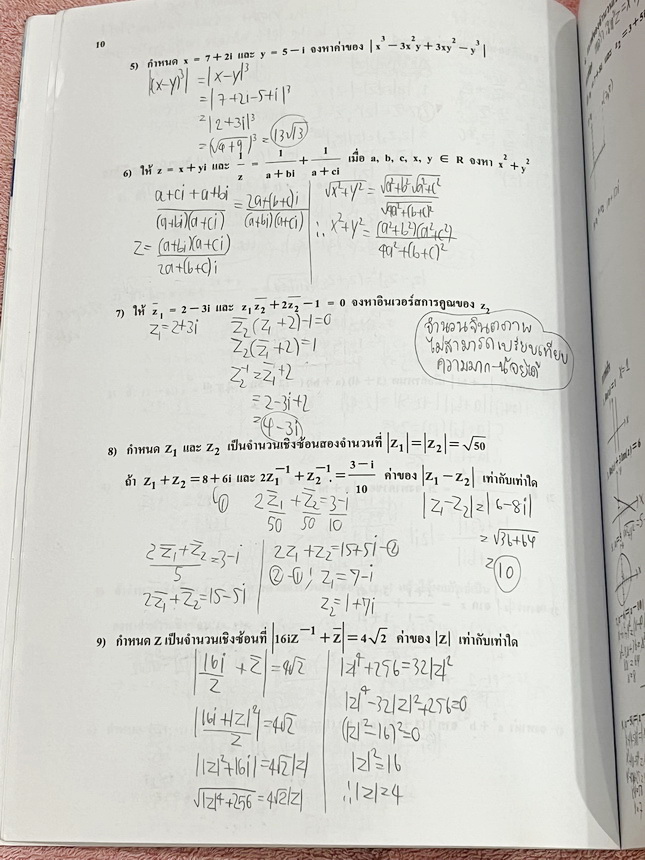 10
5) กำหนด x = 7 + 2i และ y = 5 − i จงหาค่าของ |x³ − 3x²y + 3xy² − y³|
|(x-y)³| = |x-y|³
= |7+2i-5+i|³
= |2+3i|³
= (√4+9)³ = 13√13
6) ให้ z = x + yi และ 1/z = 1/(a + bi) + 1/(a + ci) เมื่อ a, b, c, x, y ∈ R จงหา x² + y²
(a+ci+a+bi)/((a+bi)(a+ci)) = (2a+(b+c)i)/((a+bi)(a+ci))
z = ((a+bi)(a+ci))/(2a+(b+c)i)
√x²+y² = (√a²+b² √a²+c²)/√4a²+(b+c)²
∴ x²+y² = ((a²+b²)(a²+c²))/(4a²+(b+c)²)
7) ให้ z̄₁ = 2 − 3i และ z₁z̄₂ + 2z̄₂ − 1 = 0 จงหาอินเวอร์สการคูณของ z₂
z₁ = 2+3i
z̄₂(z₁+2)-1=0
z₂(z̄₁+2)=1
z₂⁻¹ = z̄₁+2
= 2-3i+2
= 4-3i
จำนวนจินตภาพ
ไม่สามารถเปรียบเทียบ
ความมาก-น้อยได้
8) กำหนด Z₁ และ Z₂ เป็นจำนวนเชิงซ้อนสองจำนวนที่ |Z₁| = |Z₂| = √50
ถ้า Z₁ + Z₂ = 8 + 6i และ 2Z₁⁻¹ + Z₂⁻¹ = (3 − i)/10 ค่าของ |Z₁ − Z₂| เท่ากับเท่าใด
①
2z̄₁/50 + z̄₂/50 = (3-i)/10
(2z̄₁+z̄₂)/5 = 3-i
2z̄₁+z̄₂ = 15-5i
2z₁+z₂ = 15+5i -②
②-① ; z₁ = 7-i
z₂ = 1+7i
|z₁-z₂| = |6-8i|
= √36+64
= 10
9) กำหนด Z เป็นจำนวนเชิงซ้อนที่ |16iZ⁻¹ + Z̄| = 4√2 ค่าของ |Z| เท่ากับเท่าใด
|16i/z + z̄| = 4√2
|(16i+|z|²)/z| = 4√2
||z|²+16i| = 4√2|z|
√|z|⁴+256 = 4√2|z|
|z|⁴+256=32|z|²
|z|⁴-32|z|²+256=0
(|z|²-16)²=0
|z|²=16
∴|z|=4